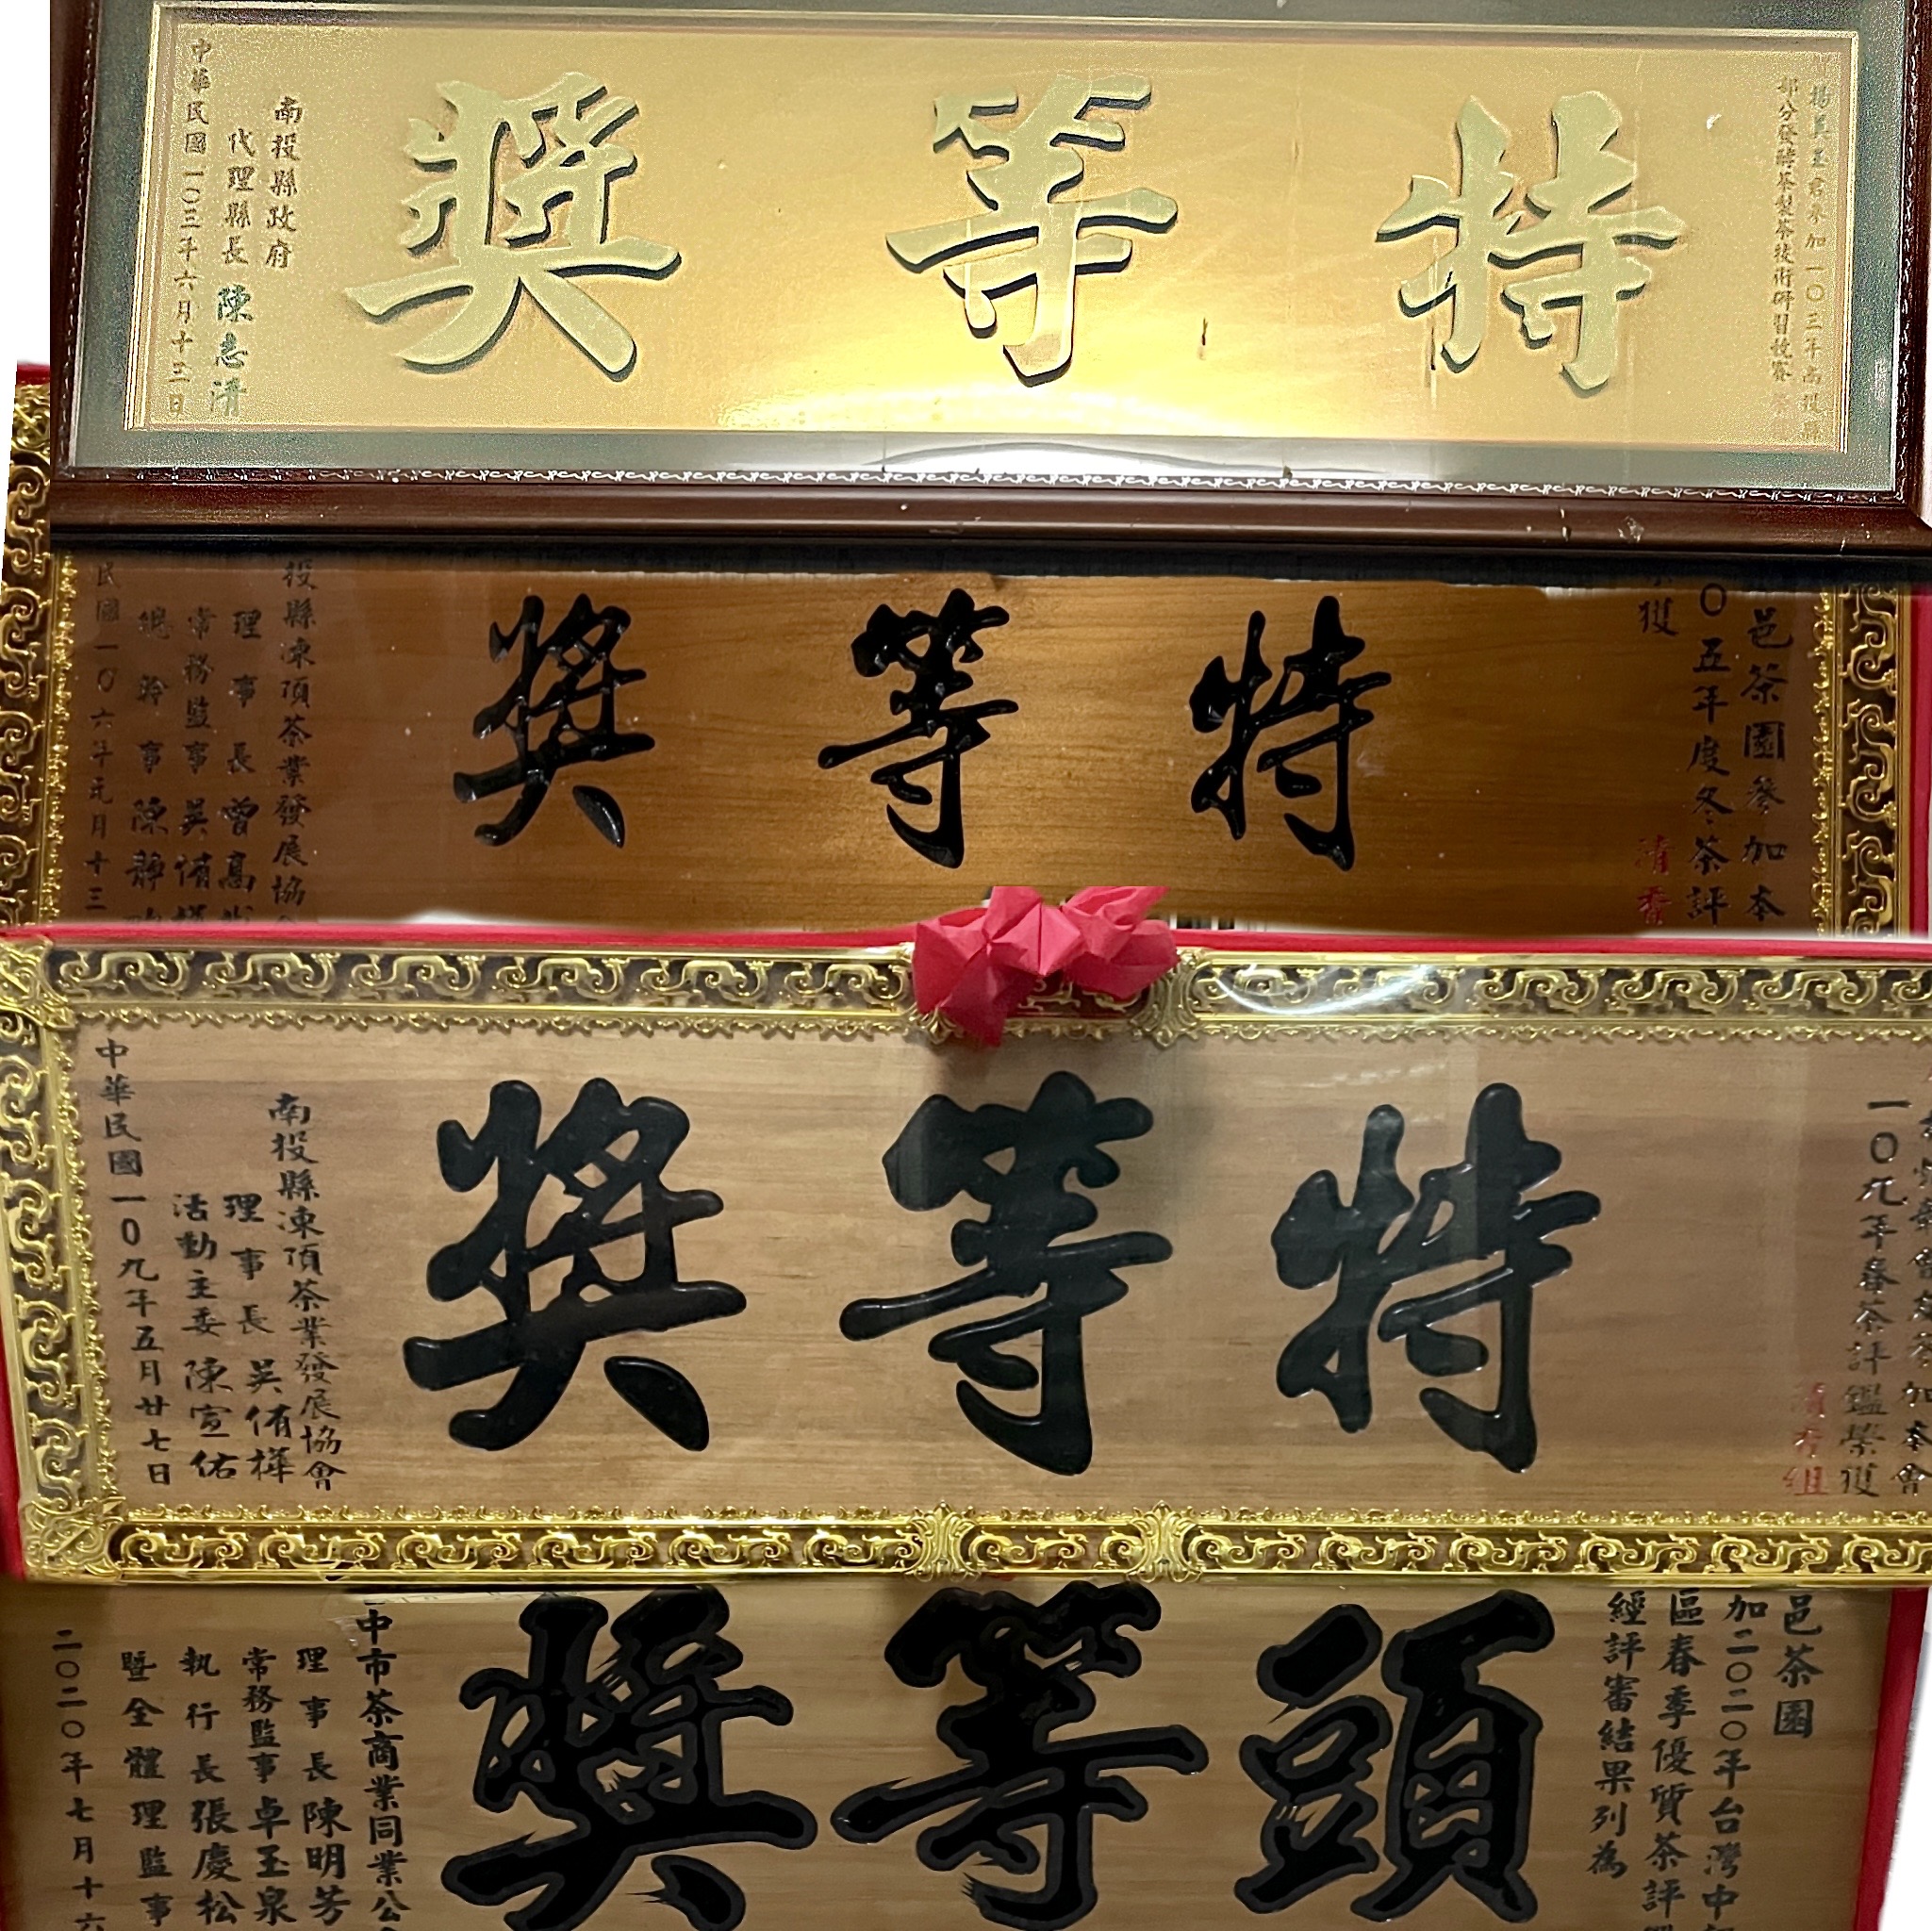 君參加一〇三年南投縣
部分發酵茶製茶技術研習競賽
特等獎
南投縣政府
代理縣長 陳志清
中華民國一〇三年六月十三日
邑茶園參加本
〇五年度冬茶評
獲
清香
特等獎
投縣凍頂茶業發展協
理事長曾
常務監事吳侑
總幹事陳靜
民國一〇六年元月十三
加本會
一〇九年春茶評鑑榮獲
清香組
特等獎
南投縣凍頂茶業發展協會
理事長 吳侑樺
活動主委 陳宣佑
中華民國一〇九年五月廿七日
邑茶園
加二〇二〇年台灣中
區春季優質茶評
經評審結果列為
頭等獎
中市茶商業同業公
理事長陳明芳
常務監事卓玉泉
執行長張慶松
暨全體理監事
二〇二〇年七月十六